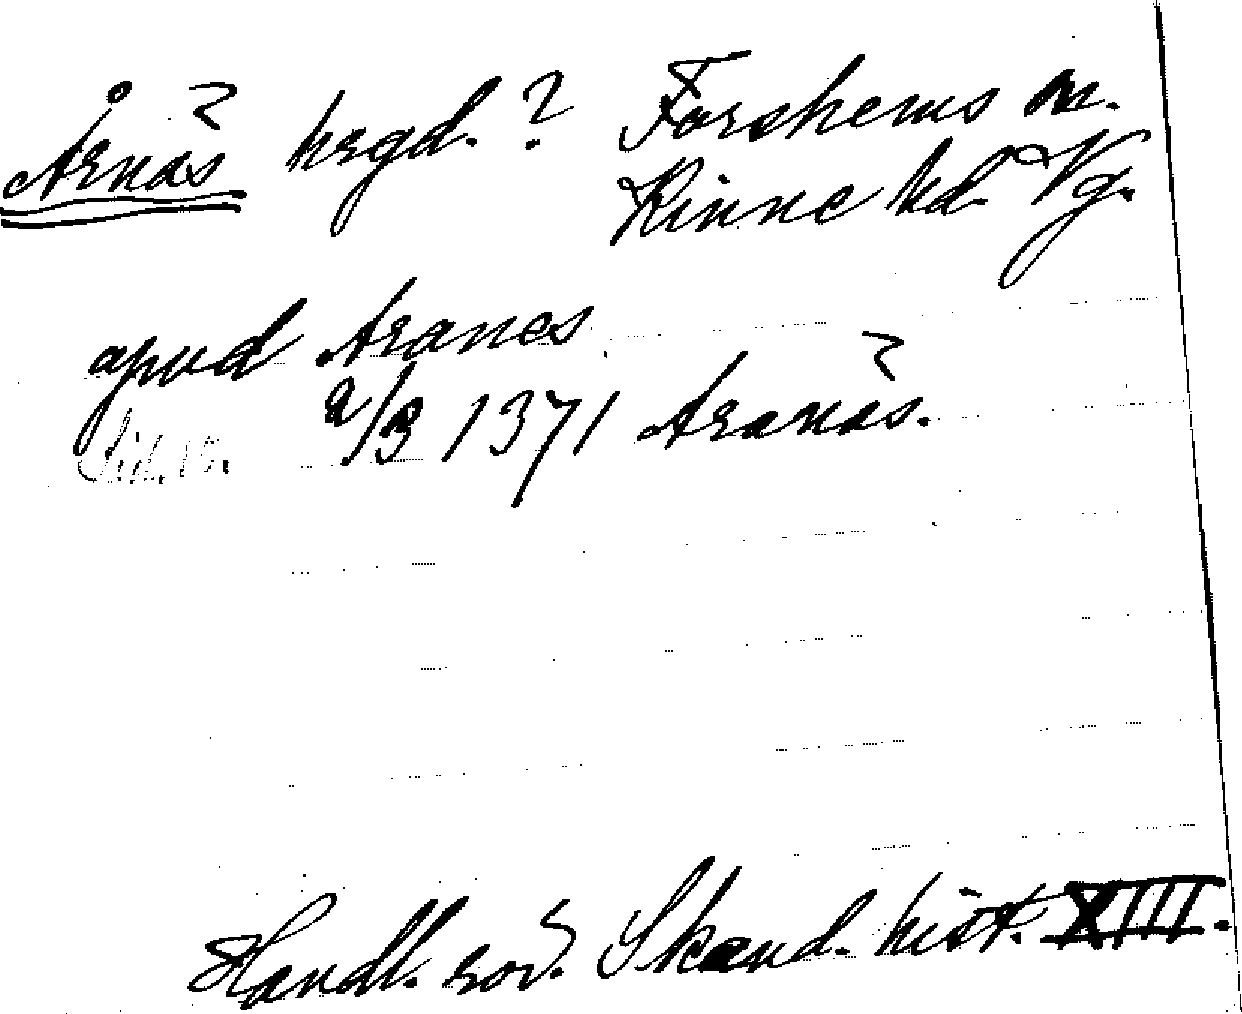 Årnäs hrgd.? Forshems sn.
Kinne hd. Vg.
apud Aranes
Sid. 15. 2/3 1371 Aranäs.
Handl. rör. Skand. hist. XIII.